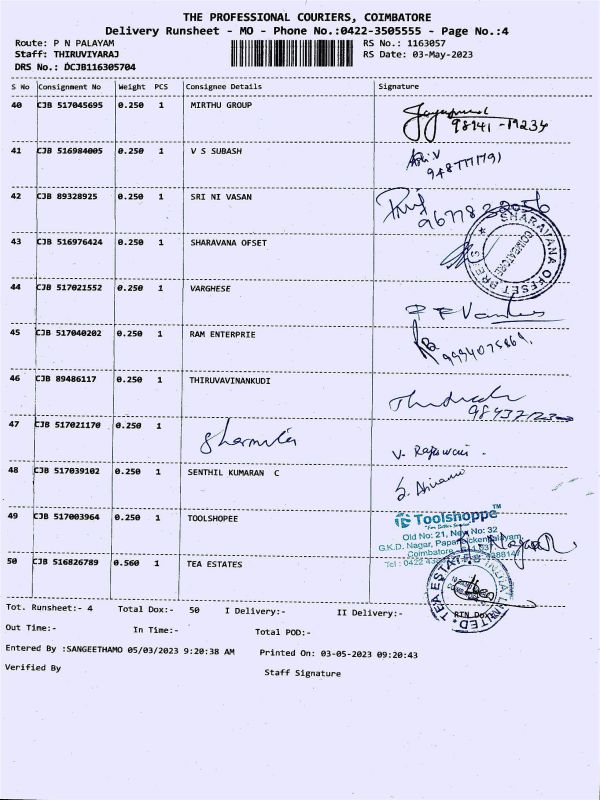 THE PROFESSIONAL COURIERS, COIMBATORE
Delivery Runsheet - MO - Phone No.:0422-3505555 - Page No.:4
Route: P N PALAYAM RS No.: 1163057
Staff: THIRUVIYARAJ RS Date: 03-May-2023
DRS No.: DCJB116305704
S No Consignment No Weight PCS Consignee Details Signature
40 CJB 517045695 0.250 1 MIRTHU GROUP
41 CJB 516984005 0.250 1 V S SUBASH
42 CJB 89328925 0.250 1 SRI NI VASAN
43 CJB 516976424 0.250 1 SHARAVANA OFSET
SHARAVANA OFFSET PRESS
COIMBATORE
44 CJB 517021552 0.250 1 VARGHESE
45 CJB 517040202 0.250 1 RAM ENTERPRIE
46 CJB 89486117 0.250 1 THIRUVAVINANKUDI
47 CJB 517021170 0.250 1 Sharmila
48 CJB 517039102 0.250 1 SENTHIL KUMARAN C
49 CJB 517003964 0.250 1 TOOLSHOPEE
Toolshoppe TM
Old No: 21, New No: 32
G.K.D. Nagar,
Coimbatore
50 CJB 516826789 0.560 1 TEA ESTATES
TEA ESTATES INDIA LIMITED
RTN Dox:-
Tot. Runsheet:- 4 Total Dox:- 50 I Delivery:- II Delivery:-
Out Time:- In Time:- Total POD:-
Entered By :SANGEETHAMO 05/03/2023 9:20:38 AM Printed On: 03-05-2023 09:20:43
Verified By Staff Signature